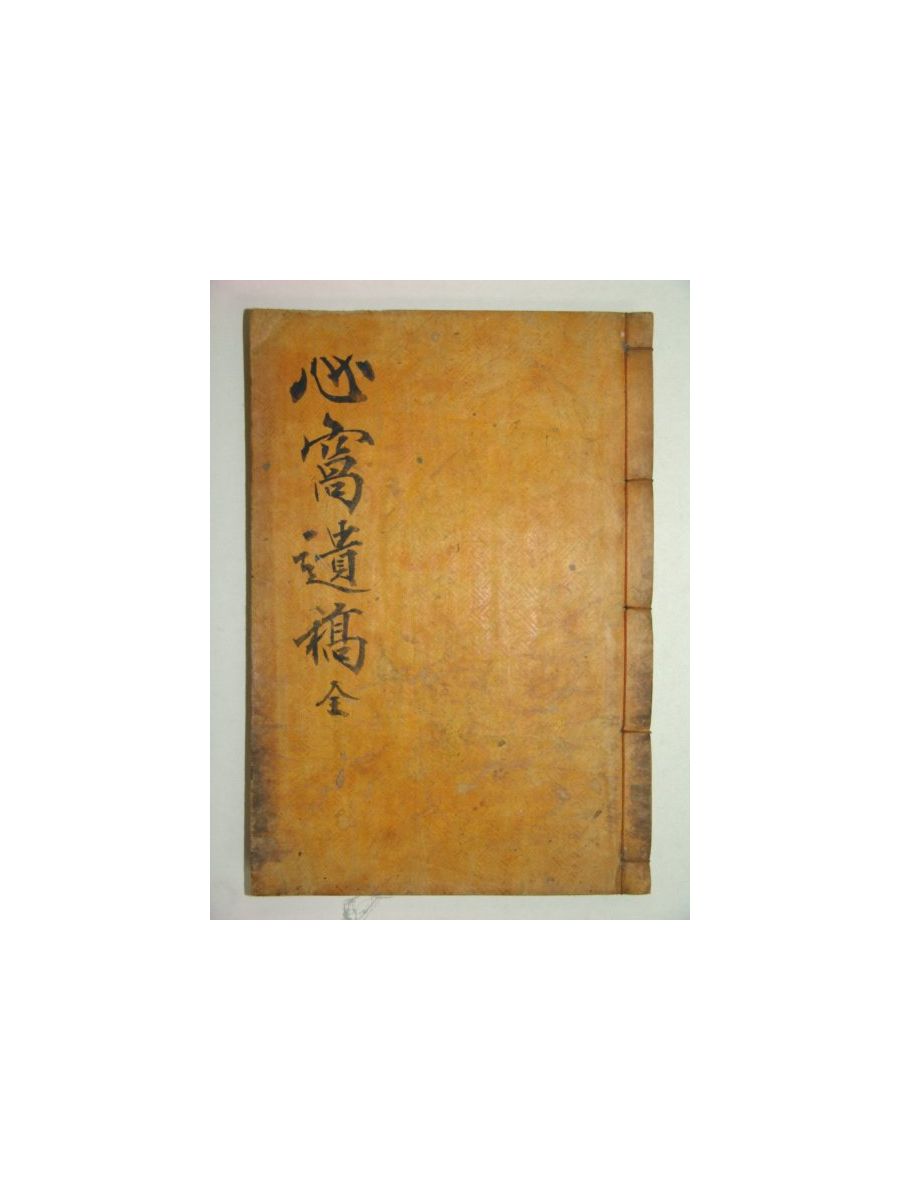 必窩遺稿全